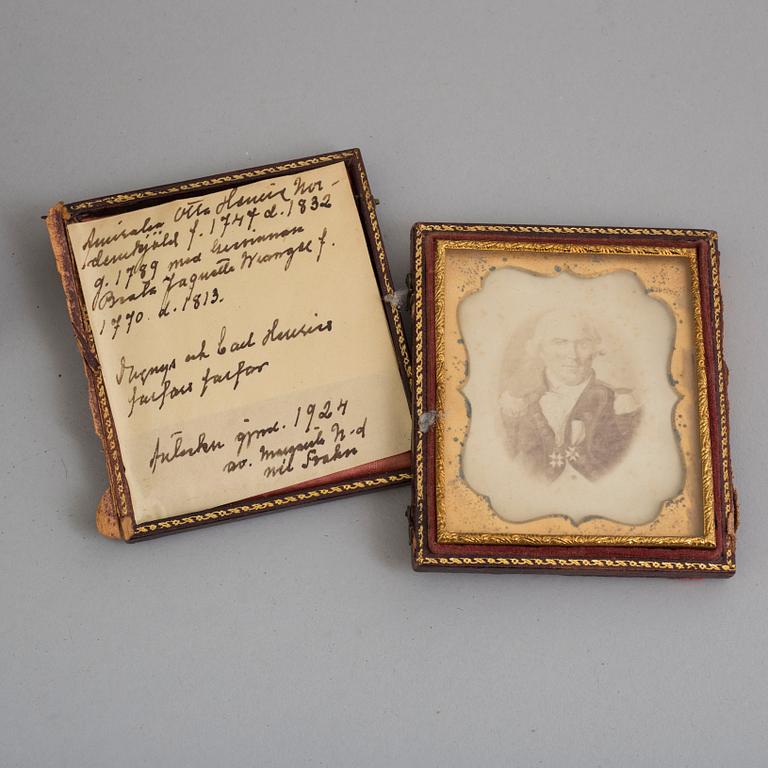 Amiralen Otto Henric Nor-
denskjöld f. 1747 d. 1832
g. 1789 med Grevinnan
Beata Jaquette Wrangel f.
1770. d. 1813.
och Carl Henrics
farfars farfar
Anteckn gjord. 1924
av. Margareta N-d